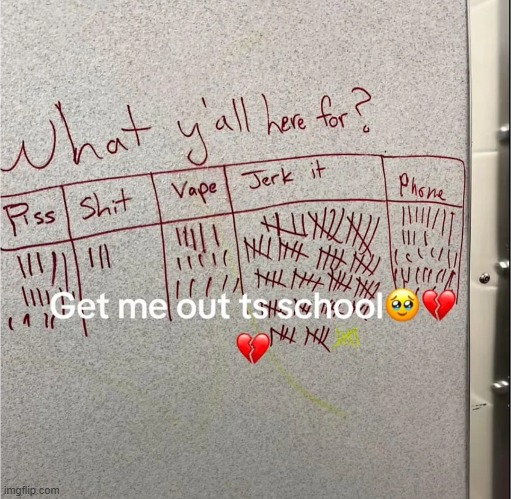 What y'all here for?
Piss Shit Vape Jerk it Phone
Get me out ts school🥹💔
💔
imgflip.com